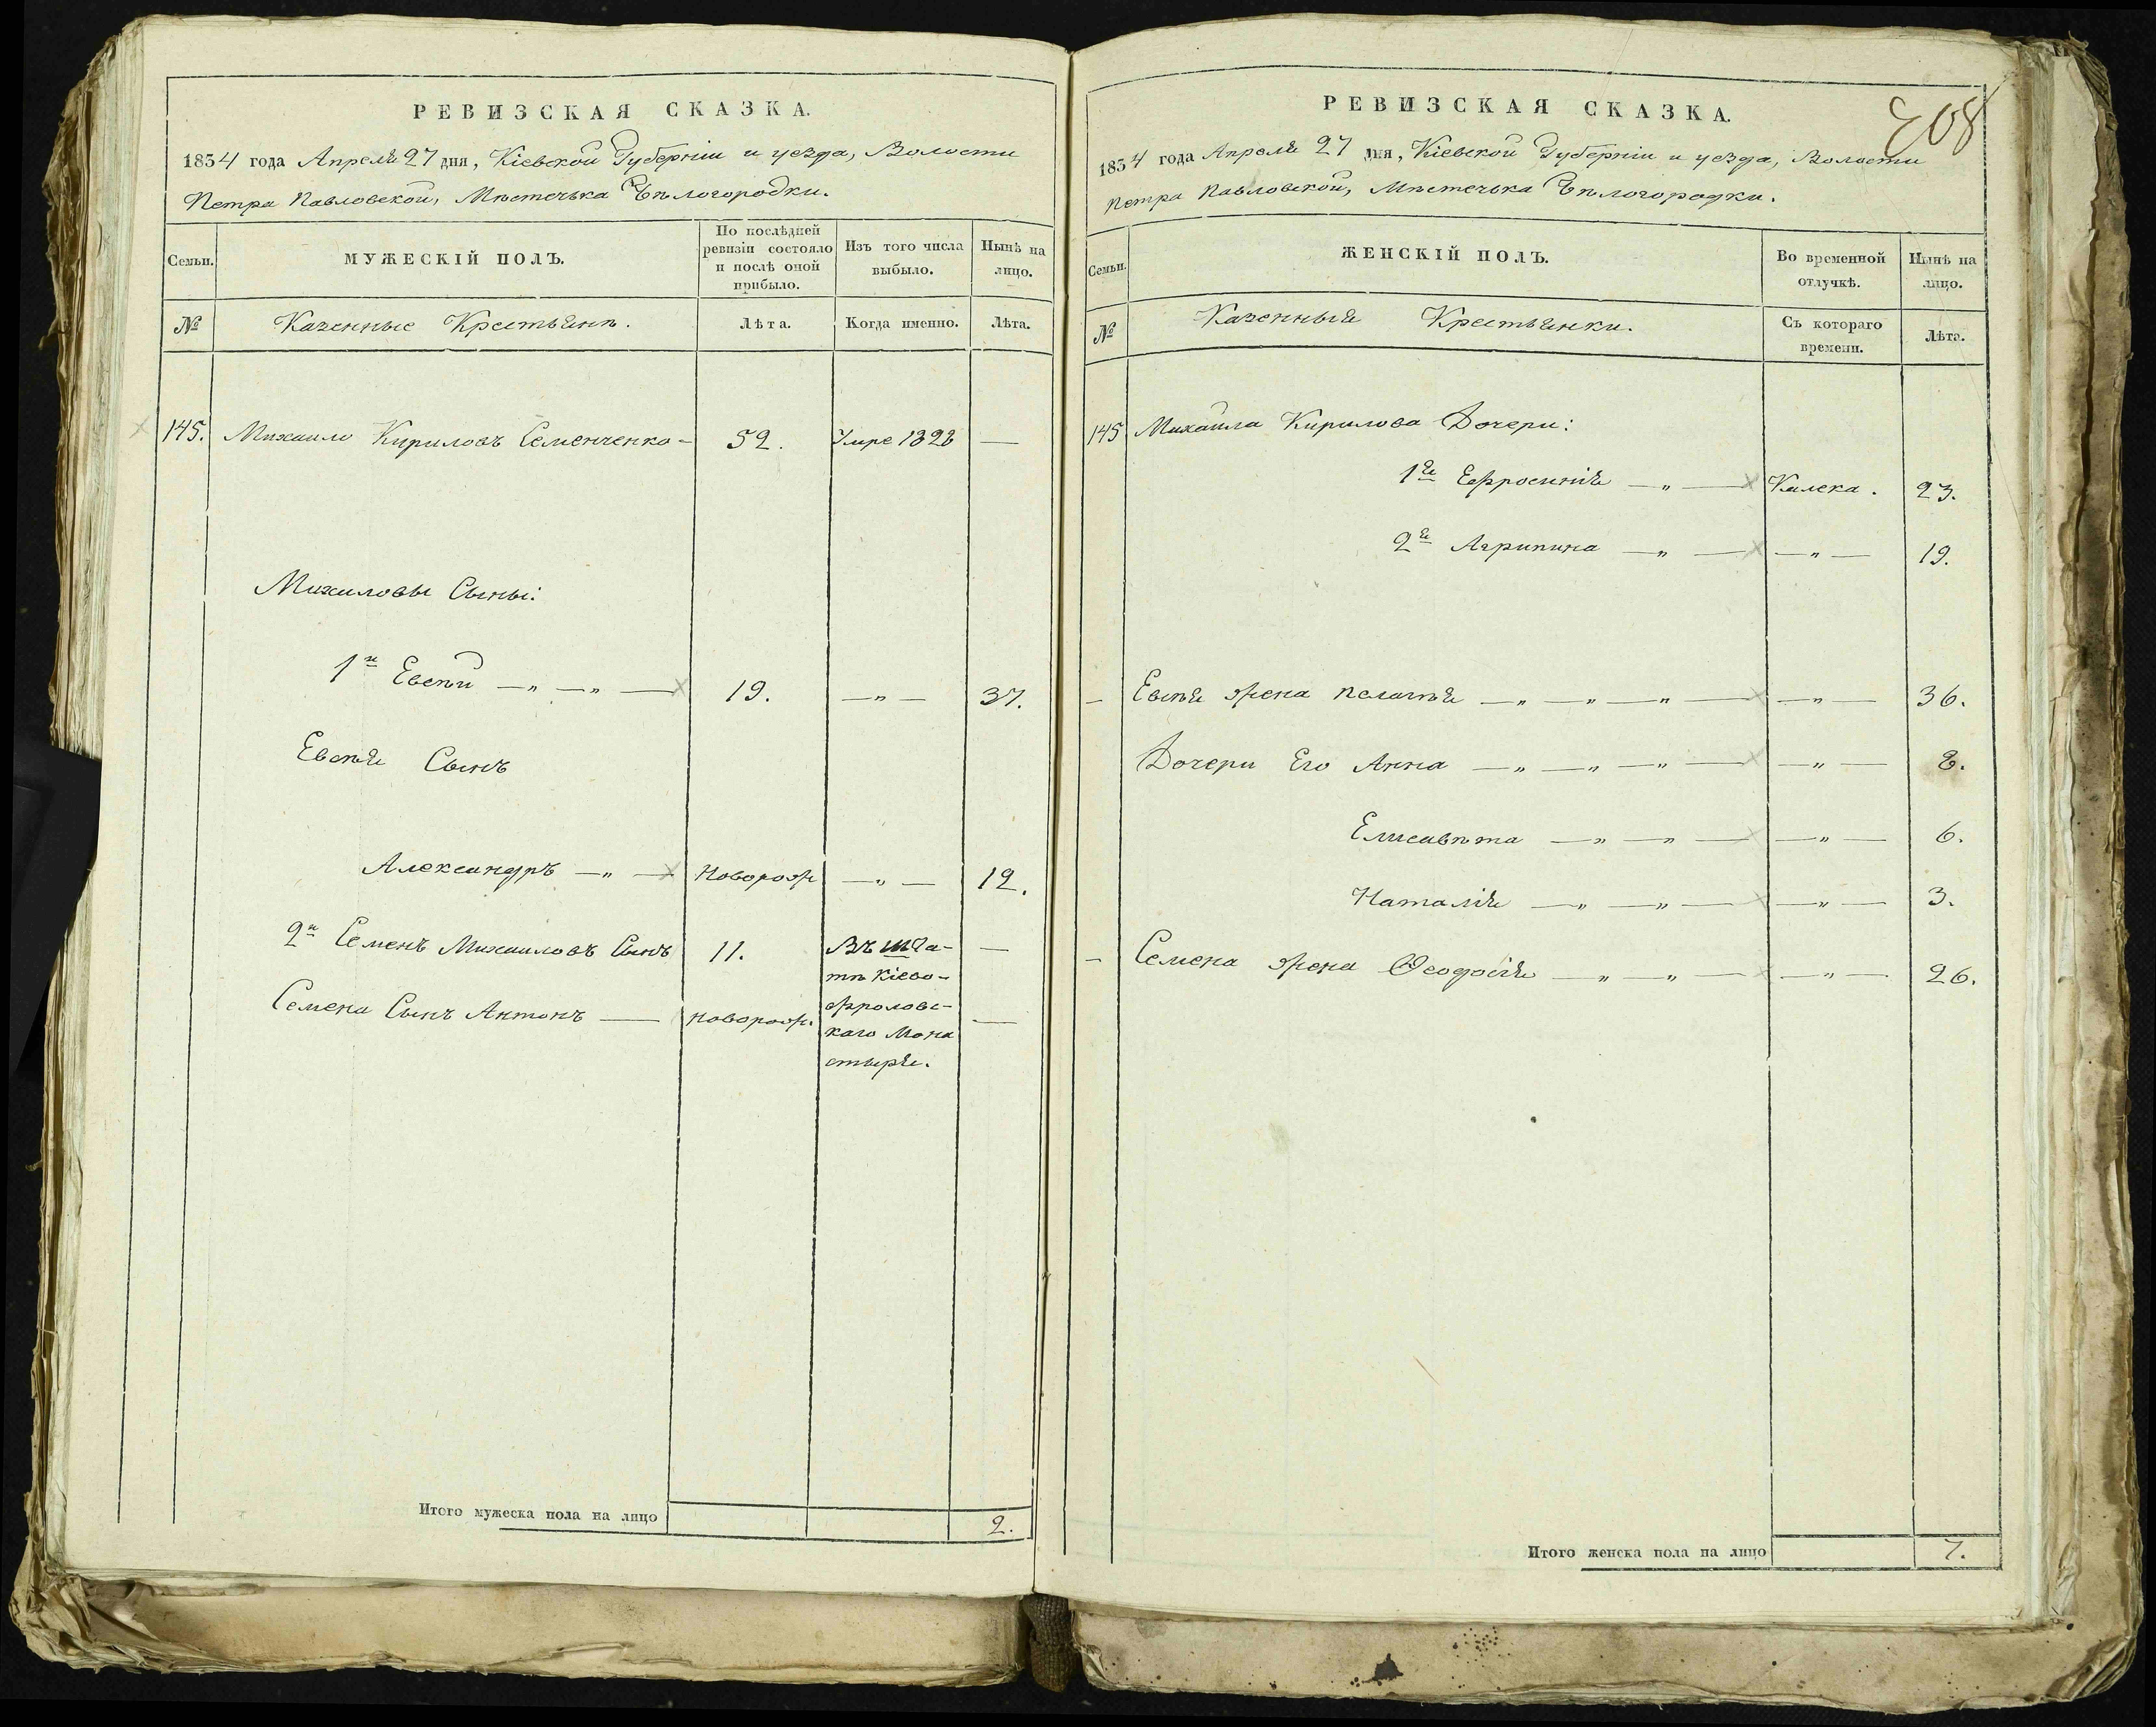 РЕВИЗСКАЯ СКАЗКА.
1834 года Апреля 27 дня, Кіевской Губерніи и уезда, Волости
Петра Павловской, Мѣстечька Бѣлогородки.
Семьи.
МУЖЕСКІЙ ПОЛЪ.
По послѣдней
ревизіи состояло
и послѣ оной
прибыло.
Изъ того числа
выбыло.
Нынѣ на
лицо.
№
Казенные Крестьянѣ.
Лѣта.
Когда именно.
Лѣта.
145. Михаило Кириловъ Семенченко - 52. Умре 1828 —
Михаиловы Сыны:
1й Евсѣй — „ — „ — 19. — „ — 37.
Евсѣя Сынъ
Александръ — „ — новорож — „ — 12.
2й Семенъ Михаиловъ Сынъ 11. Въ шта- —
тѣ Кіево-
Семена Сынъ Антонъ — новорож. фроловс- —
каго Мона
стыря.
Итого мужеска пола на лицо 2.
РЕВИЗСКАЯ СКАЗКА.
208
1834 года Апреля 27 дня, Кіевской Губерніи и уезда, Волости
Петра Павловской, Мѣстечька Бѣлогородки.
Семьи.
ЖЕНСКІЙ ПОЛЪ.
Во временной
отлучкѣ.
Нынѣ на
лицо.
№
Казенныя Крестьянки.
Съ котораго
времени.
Лѣта.
145 Михаила Кирилова Дочери:
1я Ефросинія — „ — Калека. 23.
2я Агрипина — „ — — „ — 19.
- Евсѣя жена Пелагѣя — „ — „ — „ — — „ — 36.
Дочери Его Анна — „ — „ — „ — — „ — 8.
Елисавѣта — „ — „ — — „ — 6.
Наталія — „ — „ — — „ — 3.
- Семена жена Ѳеодосія — „ — „ — — „ — 26.
Итого женска пола на лицо 7.